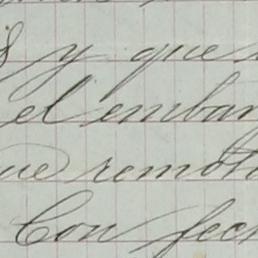 y que
el embar
ue remot
Con fech